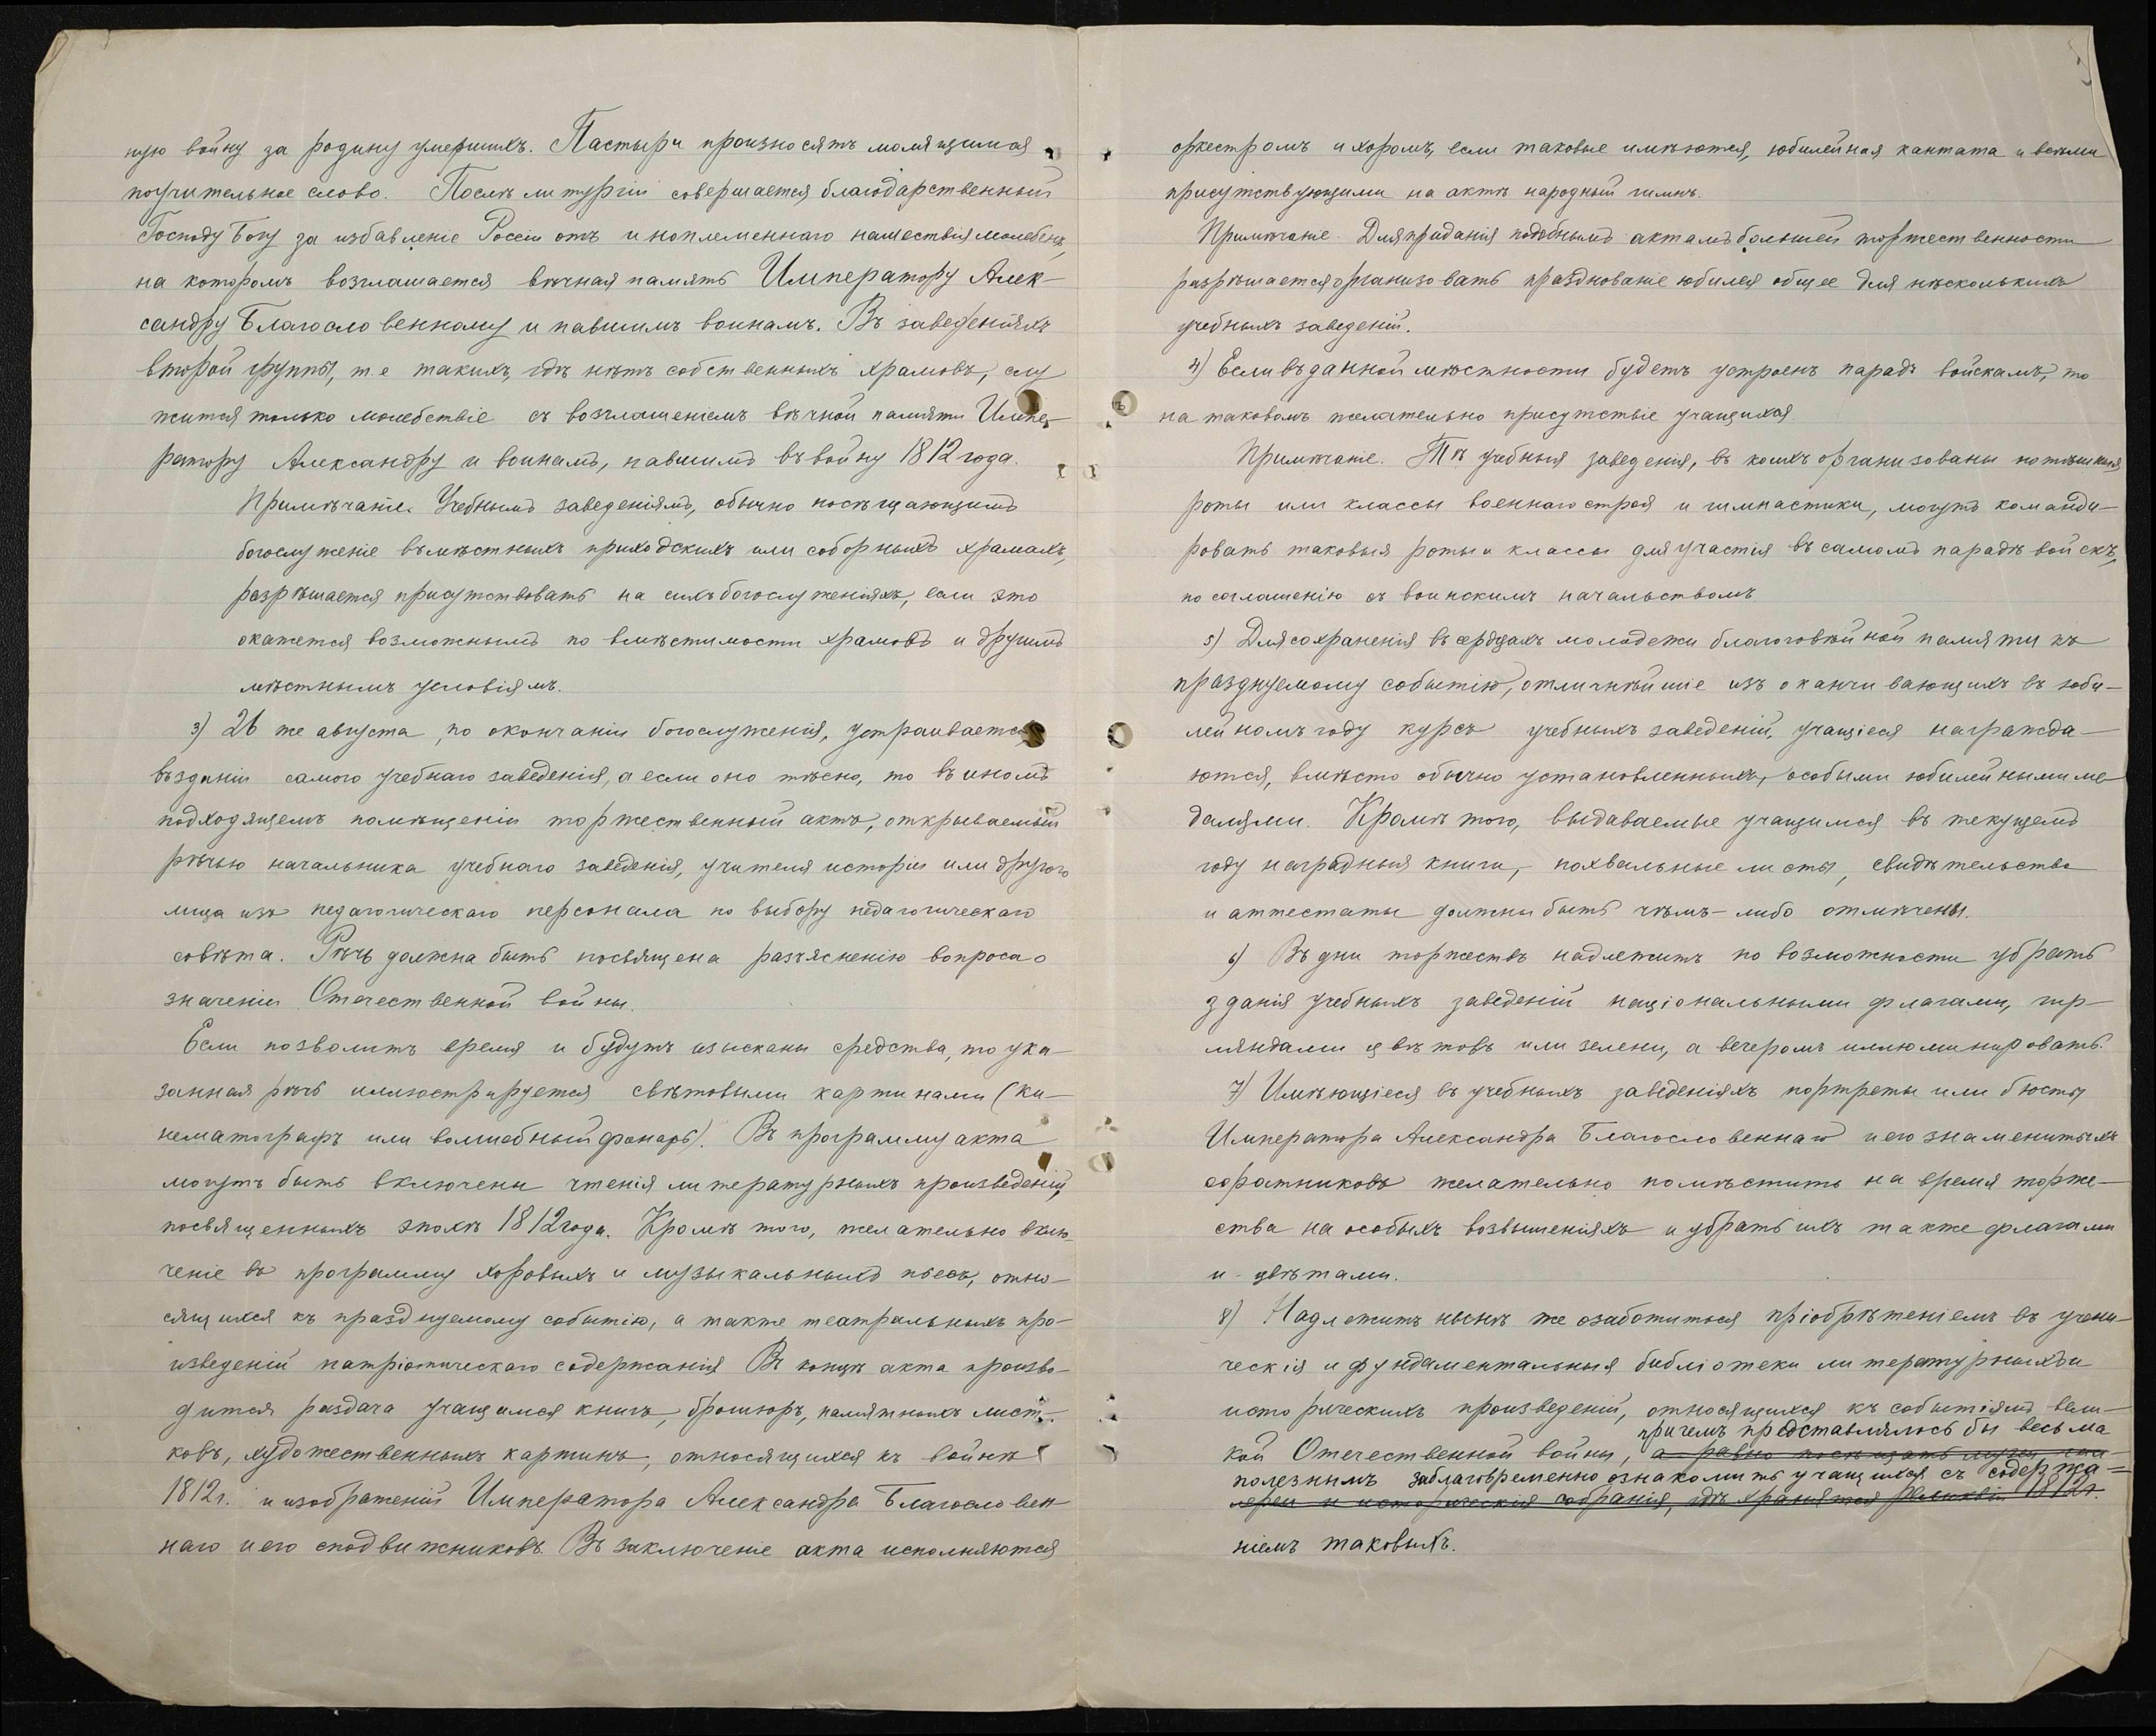 ную войну за родину умершихъ. Пастыри произносятъ молящимся
поучительное слово. Послѣ литургіи совершается благодарственный
Господу Богу за избавленіе Россіи отъ иноплеменнаго нашествія молебенъ,
на которомъ возглашается вѣчная память Императору Алек-
сандру Благословенному и павшимъ воинамъ. Въ заведеніяхъ
второй группы, т.е такихъ, гдѣ нѣтъ собственныхъ храмовъ, слу
жится только молебствіе съ возглашеніемъ вѣчной памяти Импе-
ратору Александру и воинамъ, павшимъ въ войну 1812 года.
Примѣчаніе. Учебнымъ заведеніямъ, обычно посѣщающимъ
богослуженіе въ мѣстныхъ приходскихъ или соборныхъ храмахъ,
разрѣшается присутствовать на сихъ богослуженіяхъ, если это
окажется возможнымъ по вмѣстимости храмовъ и другимъ
мѣстнымъ условіямъ.
3) 26 же августа, по окончаніи богослуженія, устраивается
въ зданіи самого учебнаго заведенія, а если оно тѣсно, то въ иномъ
подходящемъ помѣщеніи торжественный актъ, открываемый
рѣчью начальника учебнаго заведенія, учителя исторіи или другого
лица изъ педагогическаго персонала по выбору педагогическаго
совѣта. Рѣчь должна быть посвящена разъясненію вопроса о
значеніи Отечественной войны.
Если позволитъ время и будутъ изысканы средства, то ука-
занная рѣчь иллюстрируется свѣтовыми картинами (ки-
нематографъ или волшебный фонарь). Въ программу акта
могутъ быть включены чтенія литературныхъ произведеній,
посвященныхъ эпохѣ 1812 года. Кромѣ того, желательно вклю-
ченіе въ программу хоровыхъ и музыкальныхъ пьесъ, отно-
сящихся къ празднуемому событію, а также театральныхъ про-
изведеній патріотическаго содержанія. Въ концѣ акта произво-
дится раздача учащимся книгъ, брошюръ, памятныхъ лист-
ковъ, художественныхъ картинъ, относящихся къ войнѣ
1812 г. и изображеній Императора Александра Благословен-
наго и его сподвижниковъ. Въ заключеніе акта исполняются
оркестромъ и хоромъ, если таковые имѣются, юбилейная кантата и всѣми
присутствующими на актѣ народный гимнъ.
Примѣчаніе. Для приданія подобнымъ актамъ большей торжественности
разрѣшается организовать празднованіе юбилея общее для нѣсколькихъ
учебныхъ заведеній.
4) Если въ данной мѣстности будетъ устроенъ парадъ войскамъ, то
на таковомъ желательно присутствіе учащихся.
Примѣчаніе. Тѣ учебныя заведенія, въ коихъ организованы потѣшныя
роты или классы военнаго строя и гимнастики, могутъ команди-
ровать таковыя роты и классы для участія въ самомъ парадѣ войскъ,
по соглашенію съ воинскимъ начальствомъ
5) Для сохраненія въ сердцахъ молодежи благоговѣйной памяти къ
празднуемому событію, отличнѣйшіе изъ оканчивающихъ въ юби-
лейномъ году курсъ учебныхъ заведеній, учащіеся награжда-
ются, вмѣсто обычно установленныхъ, особыми юбилейными ме-
далями. Кромѣ того, выдаваемые учащимся въ текущемъ
году наградныя книги, похвальные листы, свидѣтельства
и аттестаты должны быть чѣмъ-либо отмѣчены.
6) Въ дни торжествъ надлежитъ по возможности убрать
зданія учебныхъ заведеній національными флагами, гир-
ляндами цвѣтовъ или зелени, а вечеромъ иллюминировать.
7) Имѣющіеся въ учебныхъ заведеніяхъ портреты или бюсты
Императора Александра Благословеннаго и его знаменитыхъ
соратниковъ желательно помѣстить на время торже-
ства на особыхъ возвышеніяхъ и убрать ихъ также флагами
и цвѣтами.
8) Надлежитъ нынѣ же озаботиться пріобрѣтеніемъ въ учени-
ческія и фундаментальныя библіотеки литературныхъ и
историческихъ произведеній, относящихся къ событіямъ вели-
причемъ представлялось бы весьма
кой Отечественной войны, а равно посѣщать музеи, гал-
полезнымъ заблаговременно ознакомить учащихся съ содержа-
лереи и историческія собранія, гдѣ хранятся реликвіи 1812 г.
ніемъ таковыхъ.